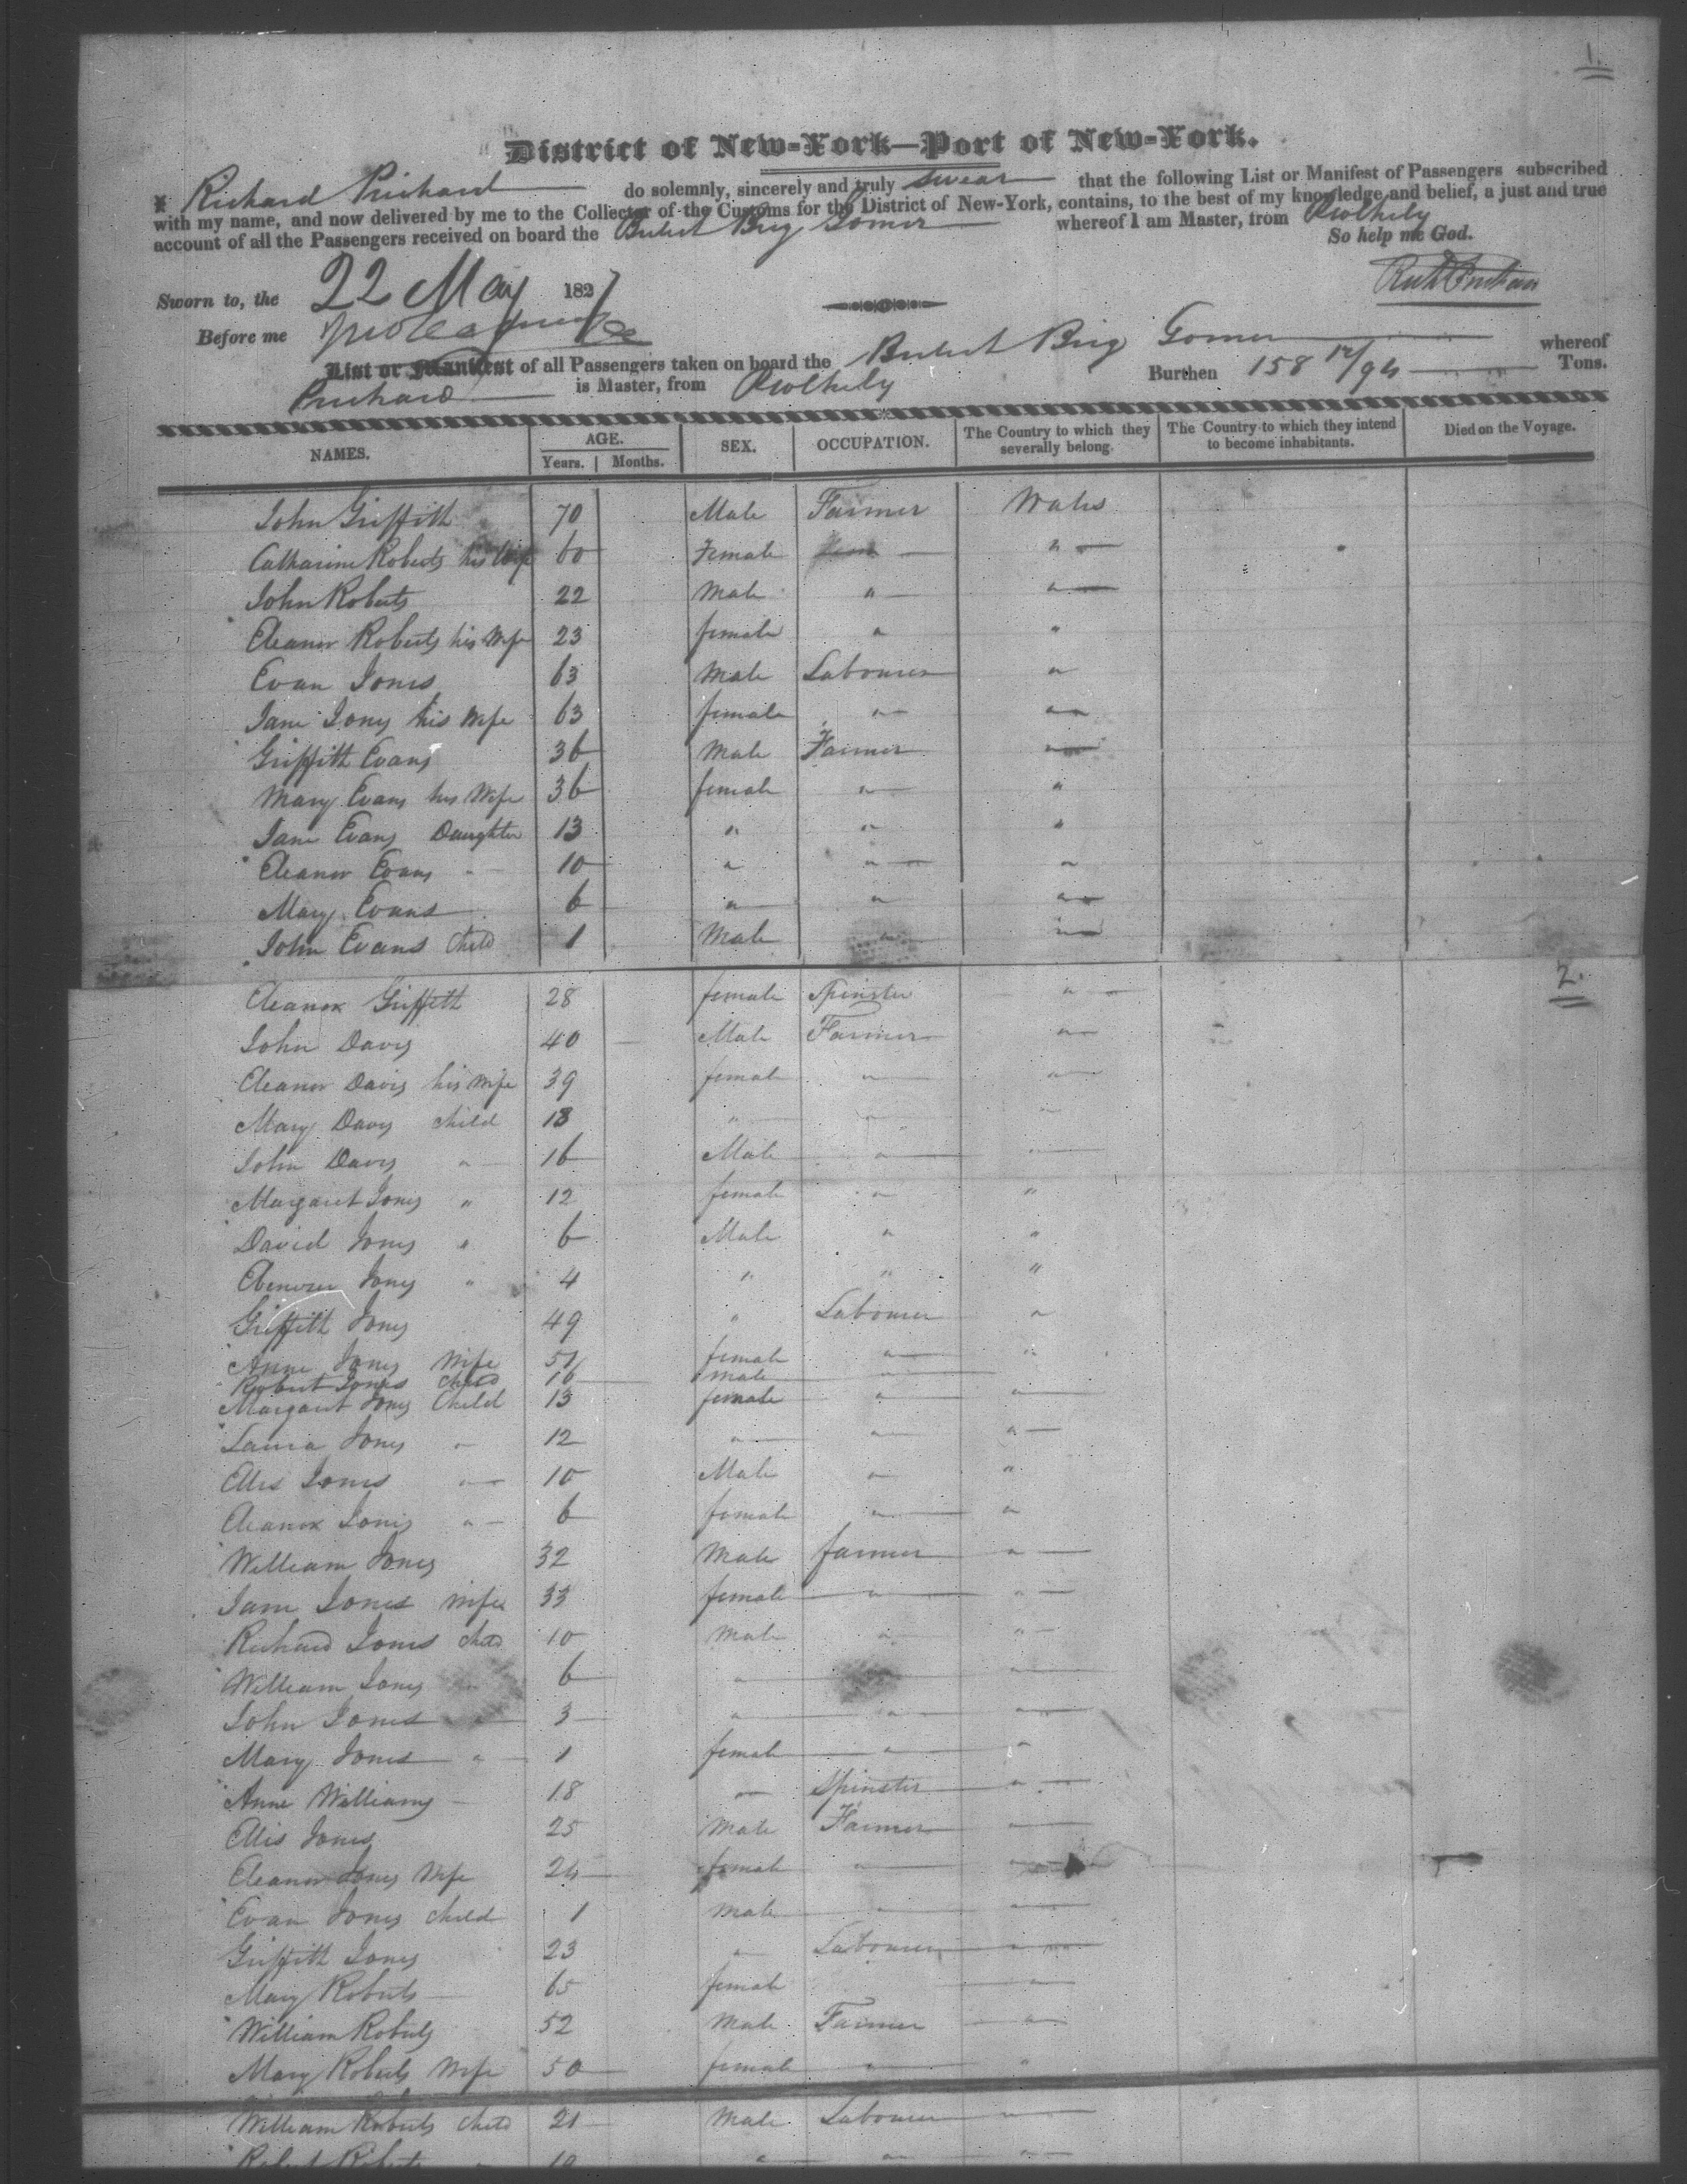 1.
District of New-York—Port of New-York.
I, Richard Prichard do solemnly, sincerely and truly swear that the following List or Manifest of Passengers subscribed
with my name, and now delivered by me to the Collector of the Customs for the District of New-York, contains, to the best of my knowledge and belief, a just and true
account of all the Passengers received on board the British Brig Gomer whereof I am Master, from Pwllhely
So help me God.
Sworn to, the 22 May 1827
Before me
List or Manifest of all Passengers taken on board the British Brig Gomer whereof
Prichard is Master, from Pwllhely Burthen 158 12/94 Tons.
NAMES. AGE. SEX. OCCUPATION. The Country to which they severally belong. The Country to which they intend to become inhabitants. Died on the Voyage.
Years. Months.
John Griffith 70 Male Farmer Wales
Catharine Roberts his Wife 60 Female " "
John Roberts 22 Male " "
Eleanor Roberts his Wife 23 female " "
Evan Jones 63 Male Labourer "
Jane Jones his Wife 63 female " "
Griffith Evans 36 Male Farmer "
Mary Evans his Wife 36 female " "
Jane Evans Daughter 13 " " "
Eleanor Evans " 10 " " "
Mary Evans 6 " " "
John Evans Child 1 Male " "
2.
Eleanor Griffith 28 female Spinster "
John Davis 40 Male Farmer "
Eleanor Davis his Wife 39 female " "
Mary Davis child 18 " " "
John Davis " 16 Male " "
Margaret Jones " 12 female " "
David Jones " 6 Male " "
Ebenezer Jones " 4 " " "
Griffith Jones 49 " Labourer "
Anne Jones Wife 51 female " "
Robert Jones child 16 male "
Margaret Jones Child 13 female " "
Laura Jones " 12 " " "
Ellis Jones " 10 Male " "
Eleanor Jones " 6 female " "
William Jones 32 Male farmer "
Jane Jones Wife 33 female " "
Richard Jones child 10 Male " "
William Jones " 6 " " "
John Jones " 3 " " "
Mary Jones " 1 female " "
Anne Williams 18 " Spinster "
Ellis Jones 25 Male Farmer "
Eleanor Jones Wife 24 female " "
Evan Jones child 1 Male " "
Griffith Jones 23 " Labourer "
Mary Roberts 65 female "
William Roberts 52 Male Farmer "
Mary Roberts Wife 50 female " "
William Roberts child 21 Male Labourer "
Robert Roberts " 19 " " "